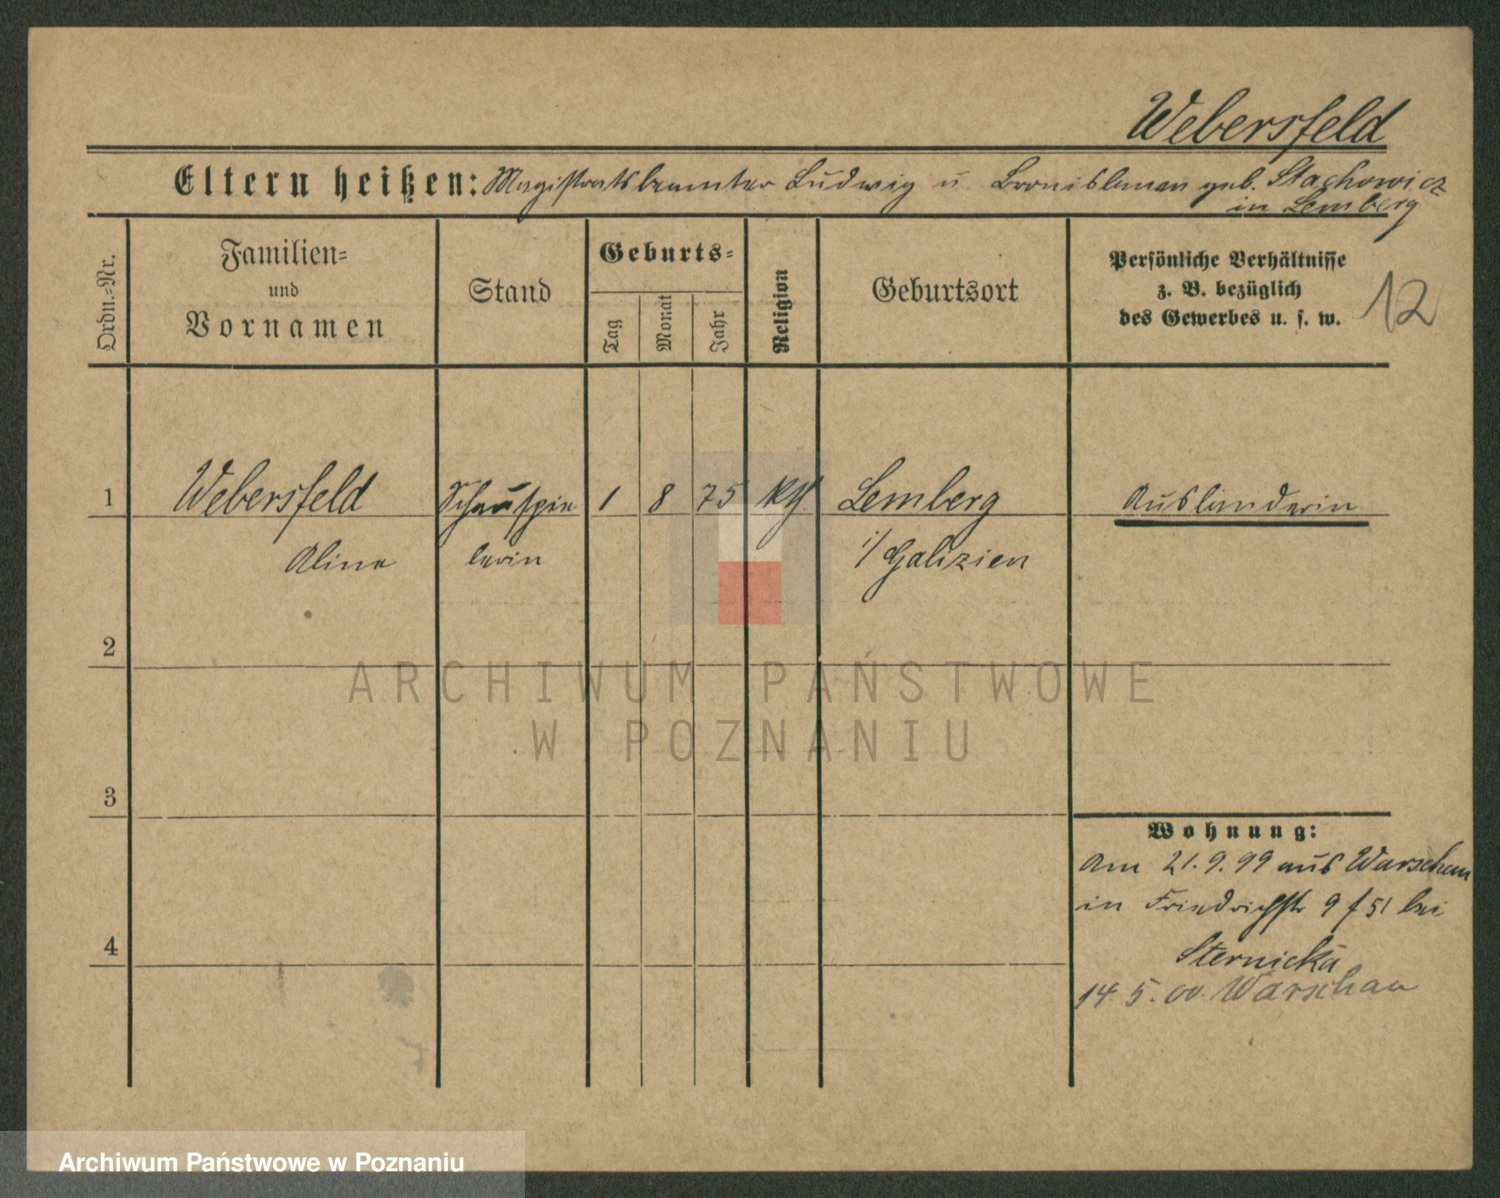 Webersfeld
Eltern heißen: Magistratsbeamter Ludwig u Bronislawa geb. Stachowicz
in Lemberg
Ordn.-Nr.
Familien-
und
Vornamen
Stand
Geburts-
Tag
Monat
Jahr
Religion
Geburtsort
Persönliche Verhältnisse
z. B. bezüglich
des Gewerbes u. s. w.
12
1 Webersfeld Schauspie 1 8 75 kth Lemberg Ausländerin
Aline lerin i/ Galizien
2
ARCHIWUM PAŃSTWOWE
W POZNANIU
3
Wohnung:
Am 21.9.99 aus Warschau
in Friedrichstr 9 f 51 bei
4
Sternicka
14. 5. 00. Warschau
Archiwum Państwowe w Poznaniu